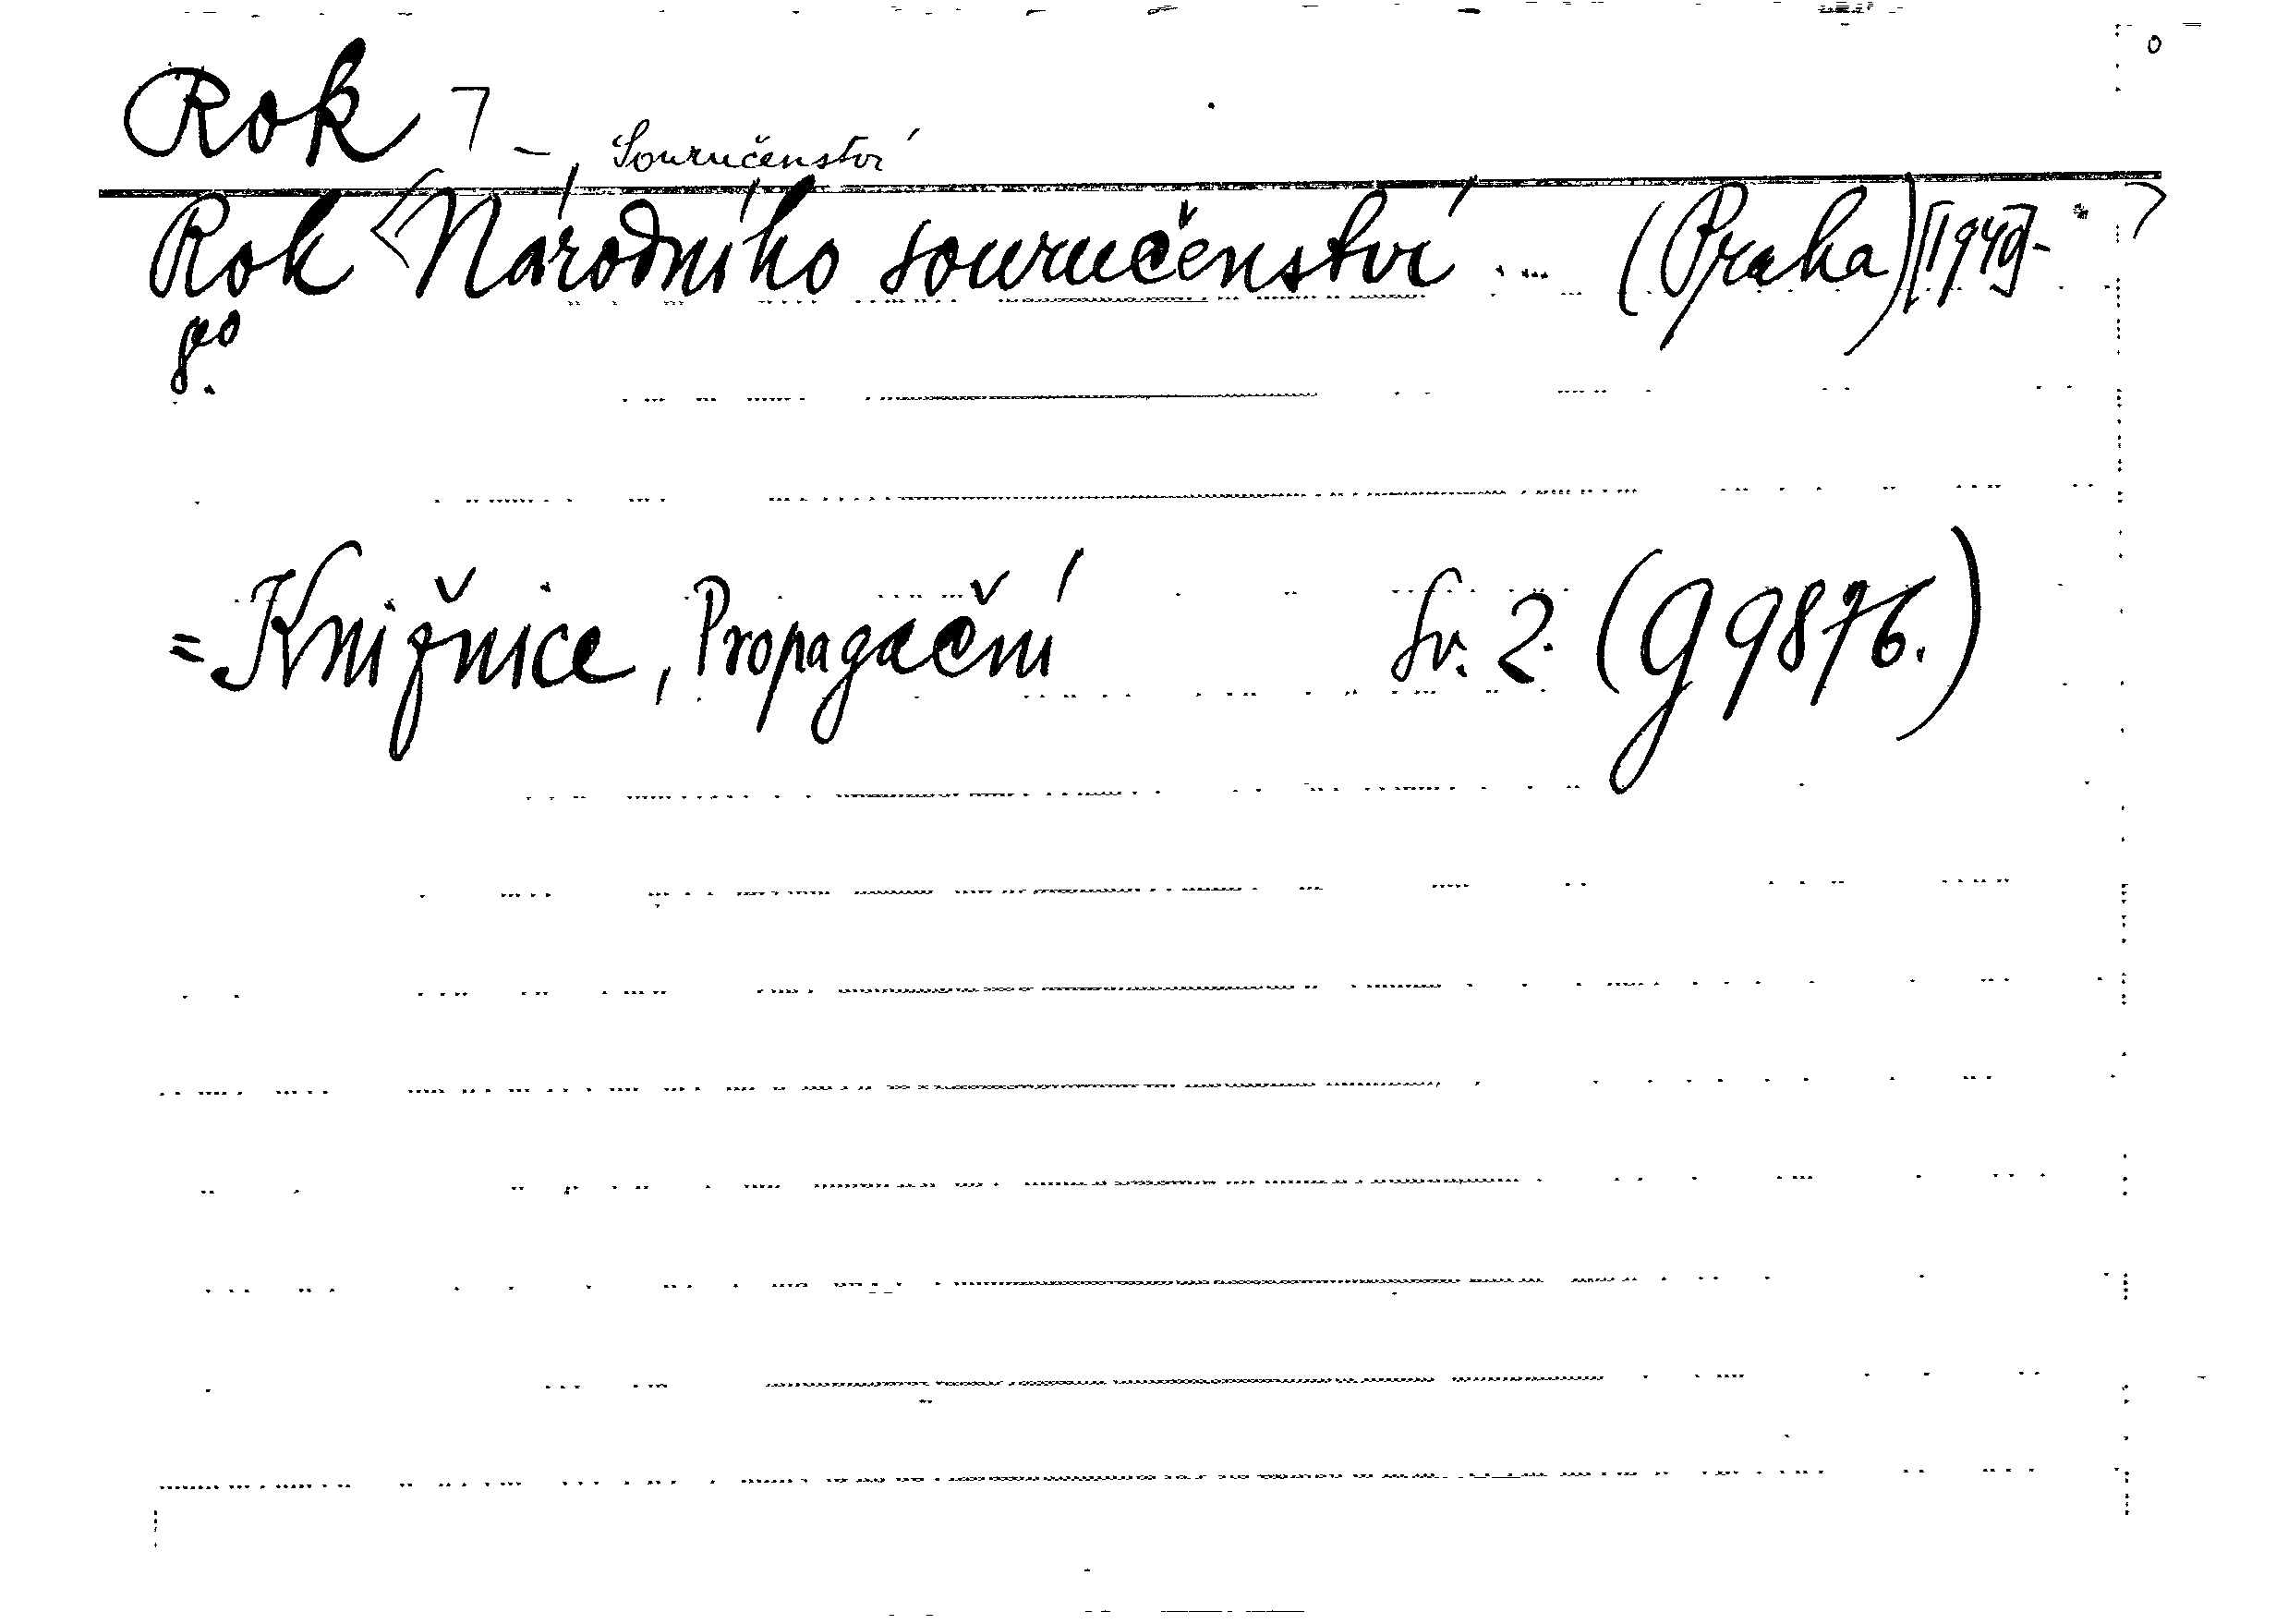 Rok ⅂ –, Souručenství
Rok <Národního souručenství ... (Praha) [1940]-
8°.
= Knižnice, Propagační Sv. 2. (G 9876.)